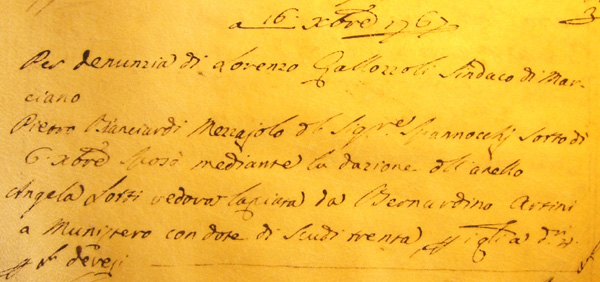 a 16. Xbre 1767 3
Per denunzia di Lorenzo Gallozzoli Sindaco di Mar-
ciano
Pietro Bianciardi Mezzajolo del Sigre Spannocchj Sotto di
6. Xbre Sposò mediante la dazione dell'anello
Angela Sorti vedova lasciata da Bernardino Artini
a Munistero con dote di Scudi trenta